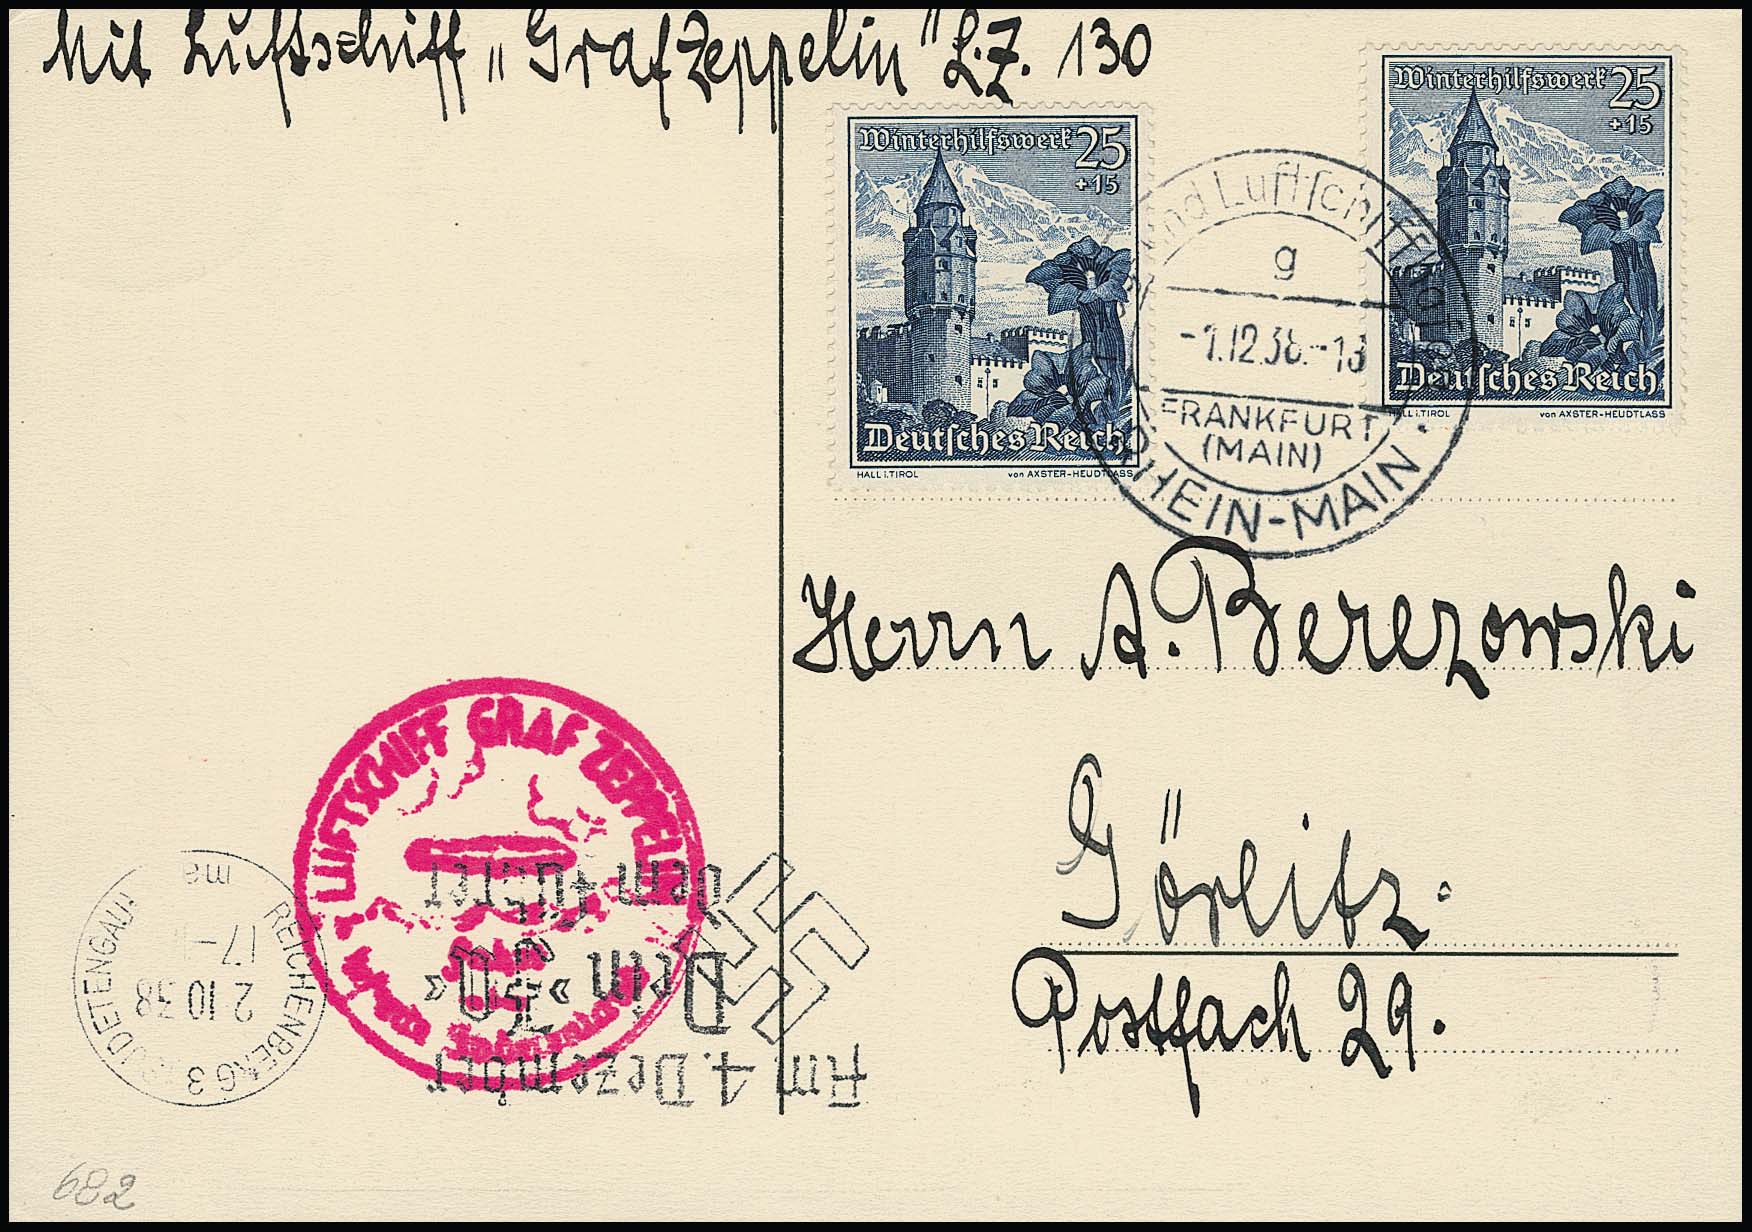 Mit Luftschiff „Graf Zeppelin“ L.Z. 130
Winterhilfswerk 25
+15
Deutsches Reich
HALL i. TIROL von AXSTER-HEUDTLASS
Winterhilfswerk 25
+15
Deutsches Reich
HALL i. TIROL von AXSTER-HEUDTLASS
und Luftschiffhafen
g
-1.12.38.-13
FRANKFURT
(MAIN)
RHEIN-MAIN
Herrn A. Berezowski
Görlitz.
Postfach 29.
LUFTSCHIFF GRAF ZEPPELIN
Am 4. Dezember
Dein »Ja«
dem Führer
REICHENBERG 3 (SUDETENGAU)
2.10.38
17-
me
682